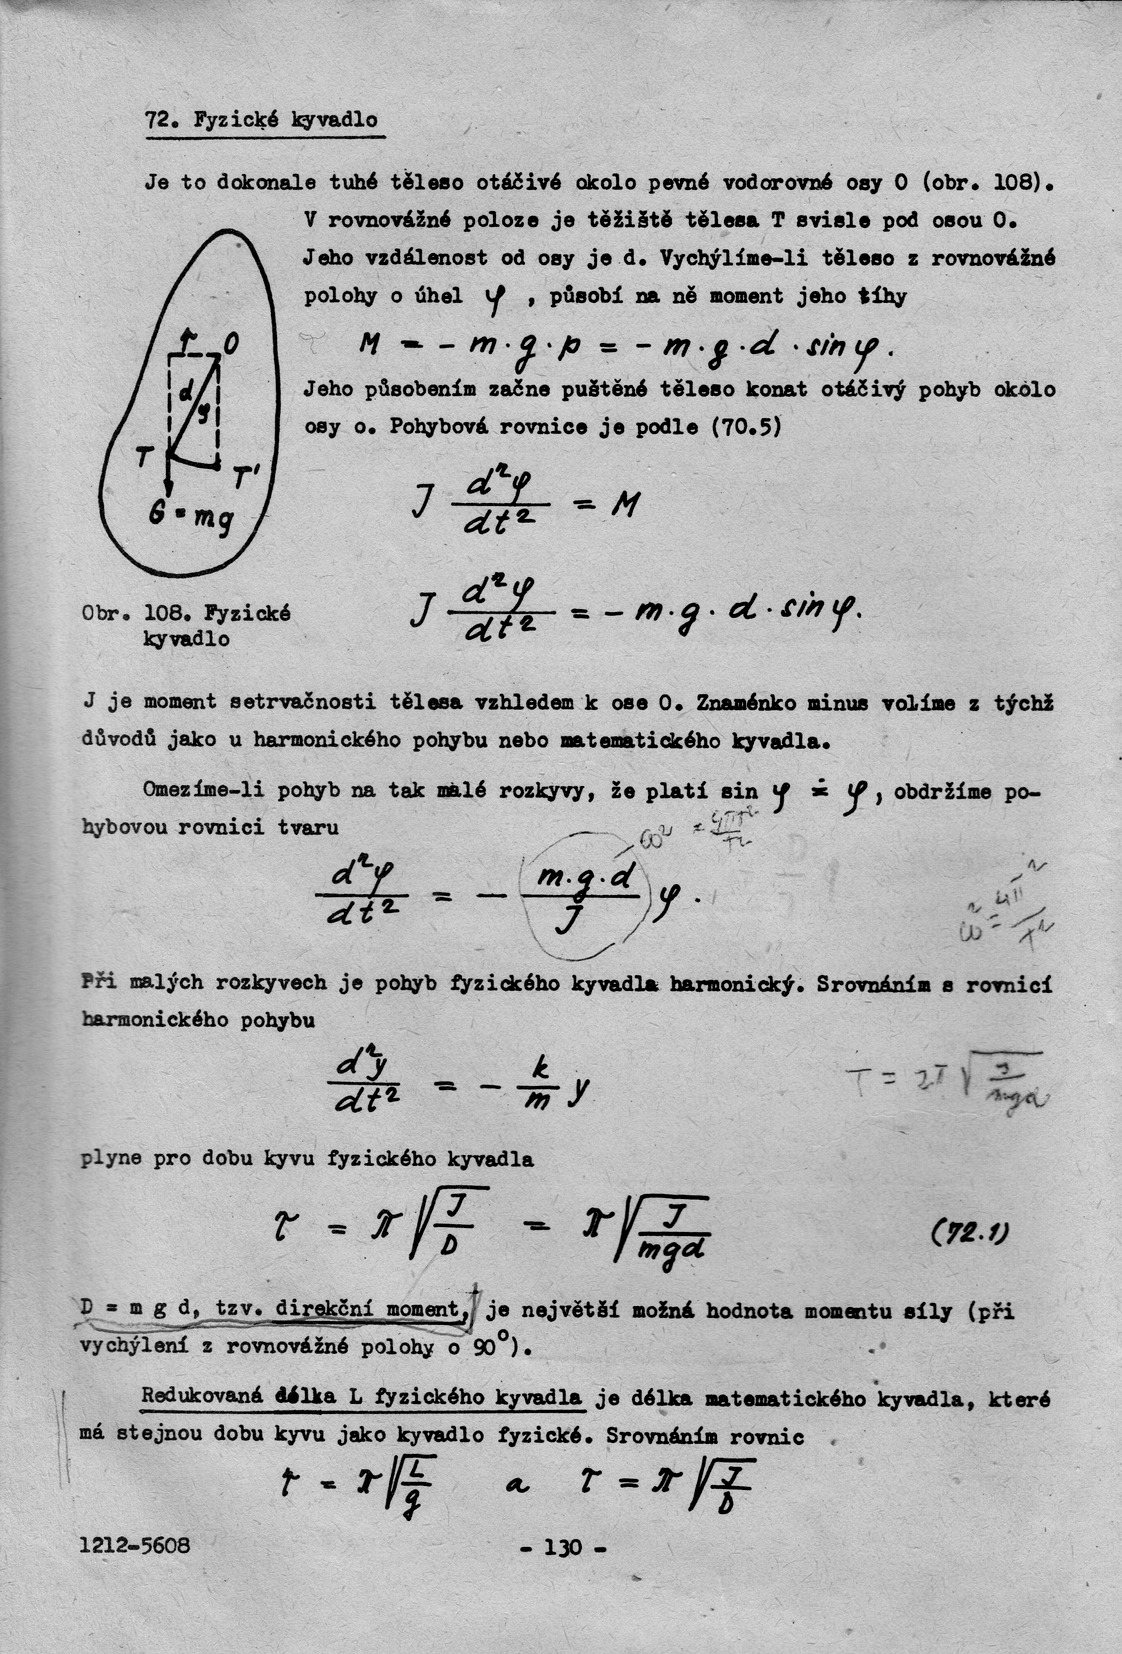 72. Fyzické kyvadlo
Je to dokonale tuhé těleso otáčivé okolo pevné vodorovné osy O (obr. 108).
V rovnovážné poloze je těžiště tělesa T svisle pod osou O.
Jeho vzdálenost od osy je d. Vychýlíme-li těleso z rovnovážné
polohy o úhel φ , působí na ně moment jeho tíhy
M = - m·g·p = - m·g·d·sin φ.
Jeho působením začne puštěné těleso konat otáčivý pohyb okolo
osy o. Pohybová rovnice je podle (70.5)
O
d
φ
T
T'
G = mg
J d²φ/dt² = M
J d²φ/dt² = - m·g·d·sin φ.
Obr. 108. Fyzické
kyvadlo
J je moment setrvačnosti tělesa vzhledem k ose O. Znaménko minus volíme z týchž
důvodů jako u harmonického pohybu nebo matematického kyvadla.
Omezíme-li pohyb na tak malé rozkyvy, že platí sin φ ≐ φ, obdržíme po-
hybovou rovnici tvaru
ω² = 4π²/T²
d²φ/dt² = - m·g·d/J φ.
ω² = 4π²/T²
Při malých rozkyvech je pohyb fyzického kyvadla harmonický. Srovnáním s rovnicí
harmonického pohybu
d²y/dt² = - k/m y
T = 2π √(J/mgd)
plyne pro dobu kyvu fyzického kyvadla
τ = π √(J/D) = π √(J/mgd) (72.1)
D = m g d, tzv. direkční moment, je největší možná hodnota momentu síly (při
vychýlení z rovnovážné polohy o 90°).
Redukovaná délka L fyzického kyvadla je délka matematického kyvadla, které
má stejnou dobu kyvu jako kyvadlo fyzické. Srovnáním rovnic
τ = π √(L/g) a τ = π √(J/D)
1212-5608
- 130 -